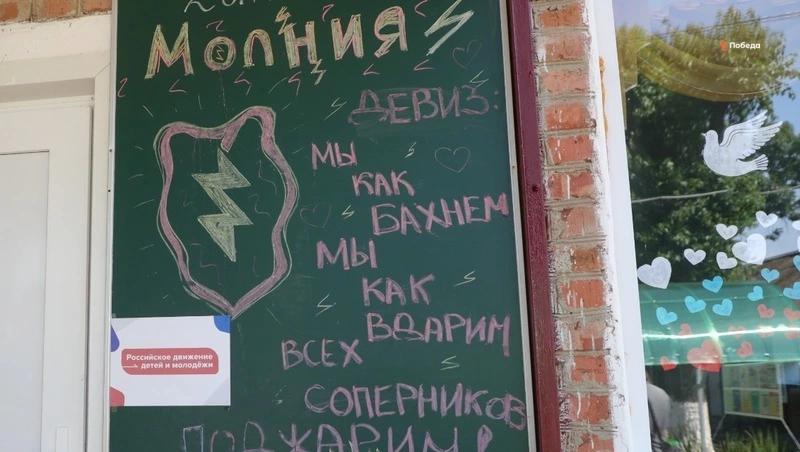 МОЛНИЯ
ДЕВИЗ:
МЫ
КАК
БАХНЕМ
МЫ
КАК
ВДАРИМ
ВСЕХ
СОПЕРНИКОВ
ПОДЖАРИМ!
Российское движение
детей и молодёжи
Победа